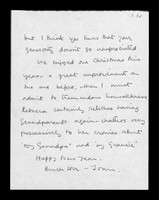 but I think you know that your
generosity doesn't go unappreciated
We enjoyed our Christmas this
year - a great improvement on
the one before, when I must
admit to tremendous homesickness
Rebecca certainly relishes having
Grandparents again - chatters very
possessively to her cronies about
"my Grandpa" and "my Grannie"
Happy New Year.
Much love - Joan.